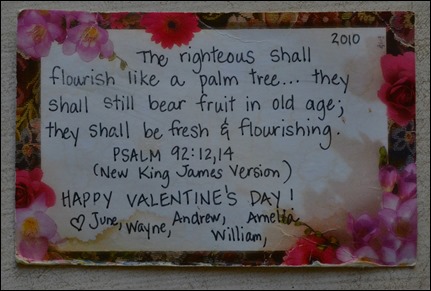 2010
The righteous shall
flourish like a palm tree... they
shall still bear fruit in old age;
they shall be fresh & flourishing.
PSALM 92:12,14
(New King James Version)
HAPPY VALENTINE'S DAY!
♡ June, Wayne, Andrew, Amelia
William,